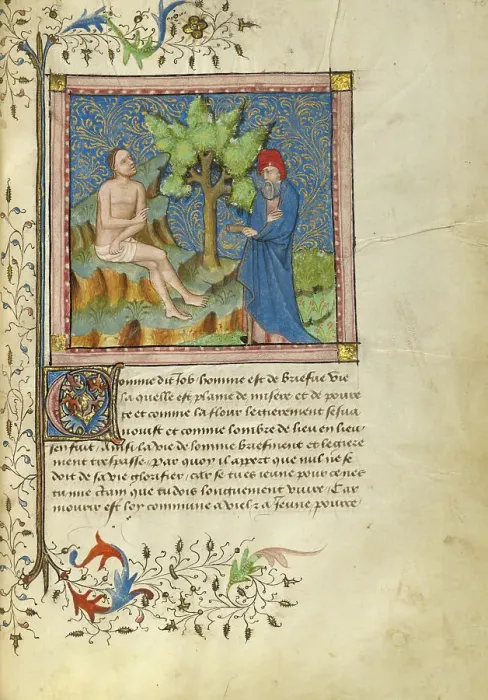 Comme dit Job homme est de briefue vie
la quelle est plaine de misere et de poure
te et comme la flour legierement se sua
nouist et comme lombre de lieu en lieu
sen fuit / ainsi la vie de lomme briefment et legiere
ment trespasse / Par quoy il appert que nul ne se
doit de sa vie glorifier / car se tu es ieune pour ce nes
tu mie que tu dois longuement viure / Car
mourir est loy commune a viel z a Jeune poure